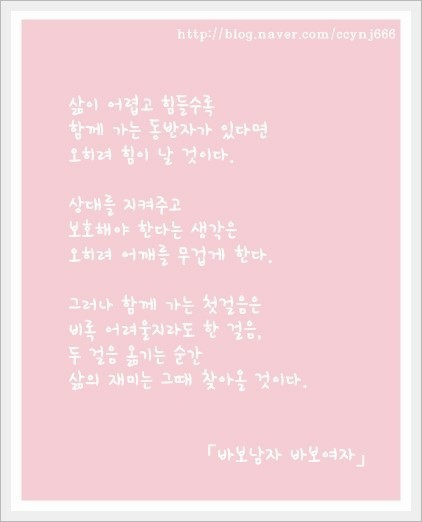 http://blog.naver.com/ccynj666
삶이 어렵고 힘들수록
함께 가는 동반자가 있다면
오히려 힘이 날 것이다.
상대를 지켜주고
보호해야 한다는 생각은
오히려 어깨를 무겁게 한다.
그러나 함께 가는 첫걸음은
비록 어려울지라도 한 걸음,
두 걸음 옮기는 순간
삶의 재미는 그때 찾아올 것이다.
「바보남자 바보여자」